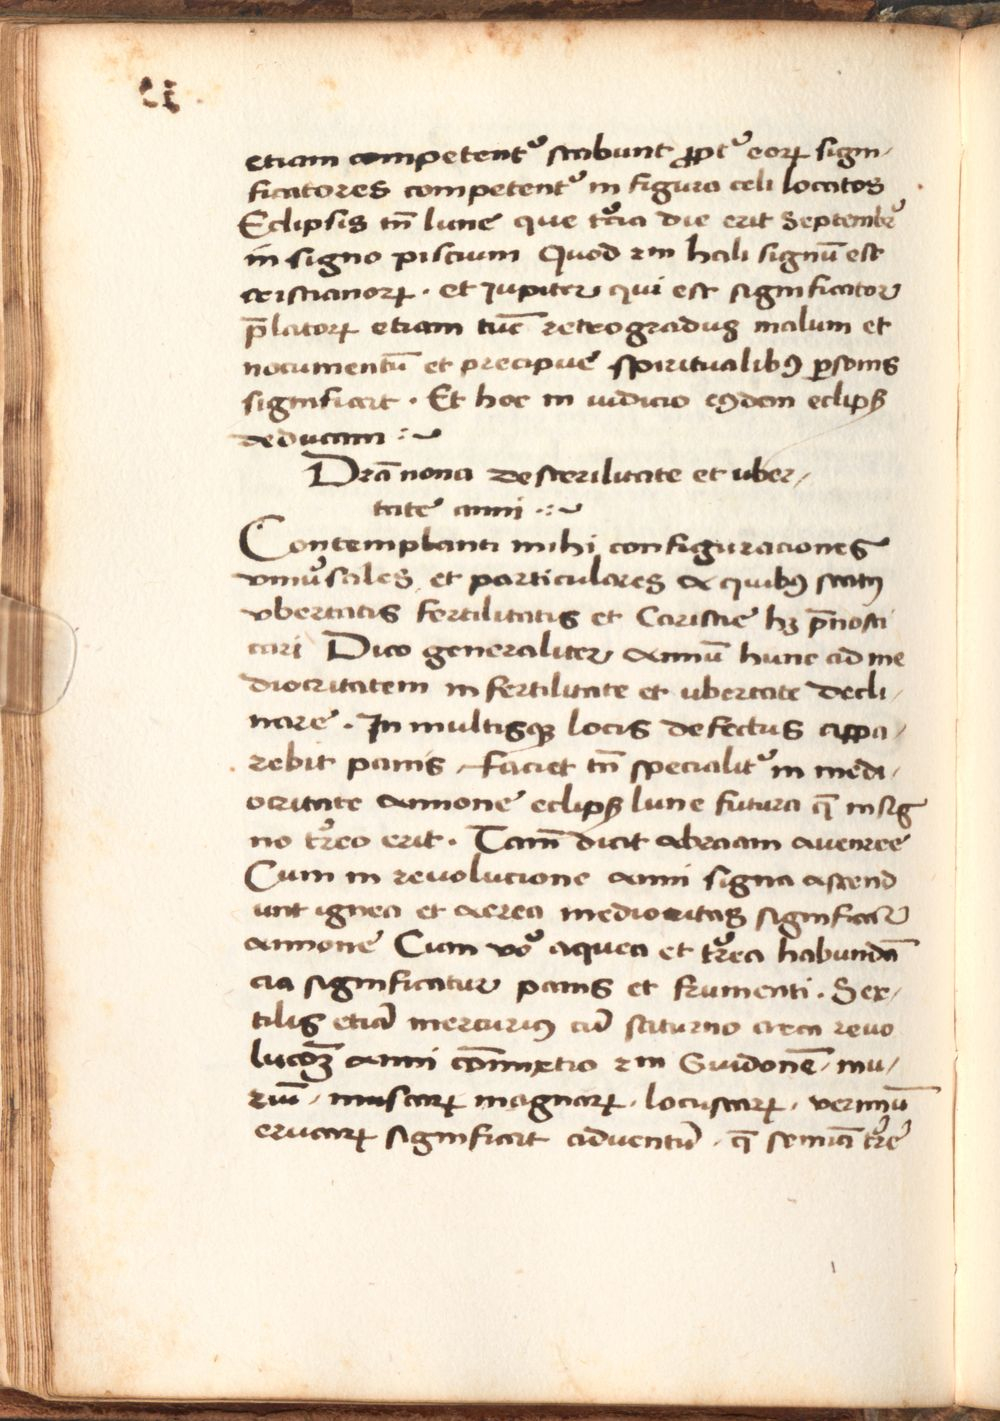 etiam competentʳ stabunt ꝓptʳ eoꝝ signi-
ficatores competentʳ in figura celi locatos
Eclipsis tn̄ lune que tʳcia die erit Septembrʳ
in signo piscium Quod ẜm hali signū est
cristianoꝝ . et Jupiter qui est significator
p̄latoꝝ etiam tūc retrogradus malum et
nocumentū et precipue spiritualibꝰ ꝑsonis
significart . Et hoc in iudicio eꝰdem eclipsꝭ
deducam :~
Dr̄a nona de sterilitate et uber-
tate anni .:~
Contemplanti mihi configuraciones
vniuʳsales et particulares ex quibꝰ statꝰ
vbertatis fertilitatis et Caristie hꝫ p̄nosti
cari Dico generaliter annū hunc ad me
diocritatem in fertilitate et ubertate decli-
nare . In multisqꝫ locis defectus appa-
rebit panis . Faciet tn̄ specialitʳ in medi-
ocritate annone eclipsꝭ lune futura q̄ in sig
no tʳreo erit . Tam̄ dicit abraam avenree
Cum in revolucione anni signa ascend
unt ignea et aerea mediocritas significatʳ
annone Cum voʳ aquea et tʳrea habundā
cia significatur panis et frumenti . Sex-
tilis etiā mercurius cū saturno circa revo
lucōꝫ anni cōnnexio ẜm Guidonē . mu-
riū . muscaꝝ magnaꝝ . locustaꝝ . vermiū
erucaꝝ significat adventū . q̄ semīa tʳre